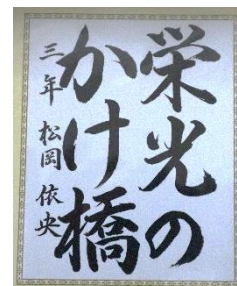 栄光の
かけ橋
三年 松岡 依央